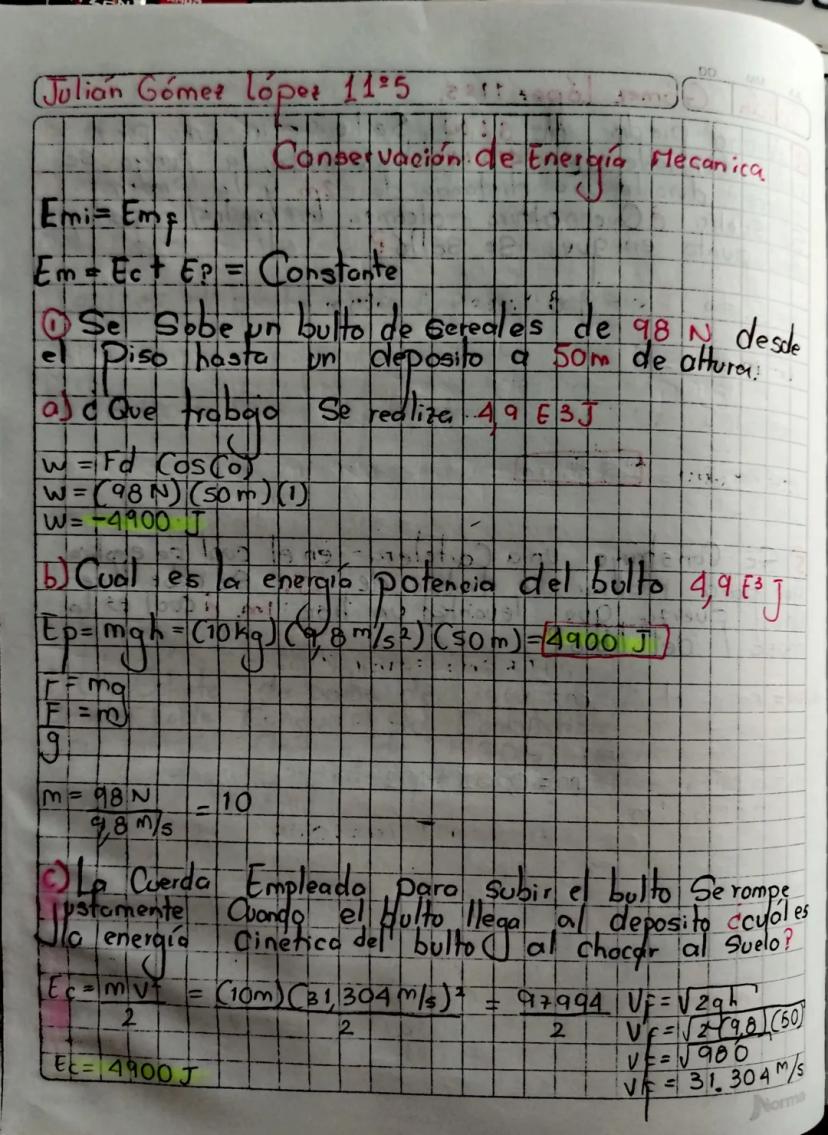 Julián Gómez lópez 11°5
Conservación de Energía Mecanica
Emi = Emf
Em = Ec + EP = Constante
① Se Sobe un bulto de cereales de 98 N desde
el Piso hasta un deposito a 50m de altura:
a) ¿Que trabajo Se realiza 4,9 E3J
W = Fd Cos(0)
W = (98 N) (50 m) (1)
W = -4900 J
b) Cual es la energía potencia del bulto 4,9 E³ J
Ep = mgh = (10kg) (9,8 m/s²) (50 m) = 4900 J
F = mg
F = m
g
m = 98 N = 10
9,8 m/s
c) La Cuerda Empleada para subir el bulto Se rompe
Justamente Cuando el bulto llega al deposito ¿cuál es
la energía Cinetica del bulto al chocar al Suelo?
Ec = m Vf² = (10m) (31,304 m/s)² = 97994
2 2 2
Ec = 4900 J
Vf = √2gh
Vf = √2 (9,8) (50)
Vf = √980
Vf = 31.304 m/s
Norma